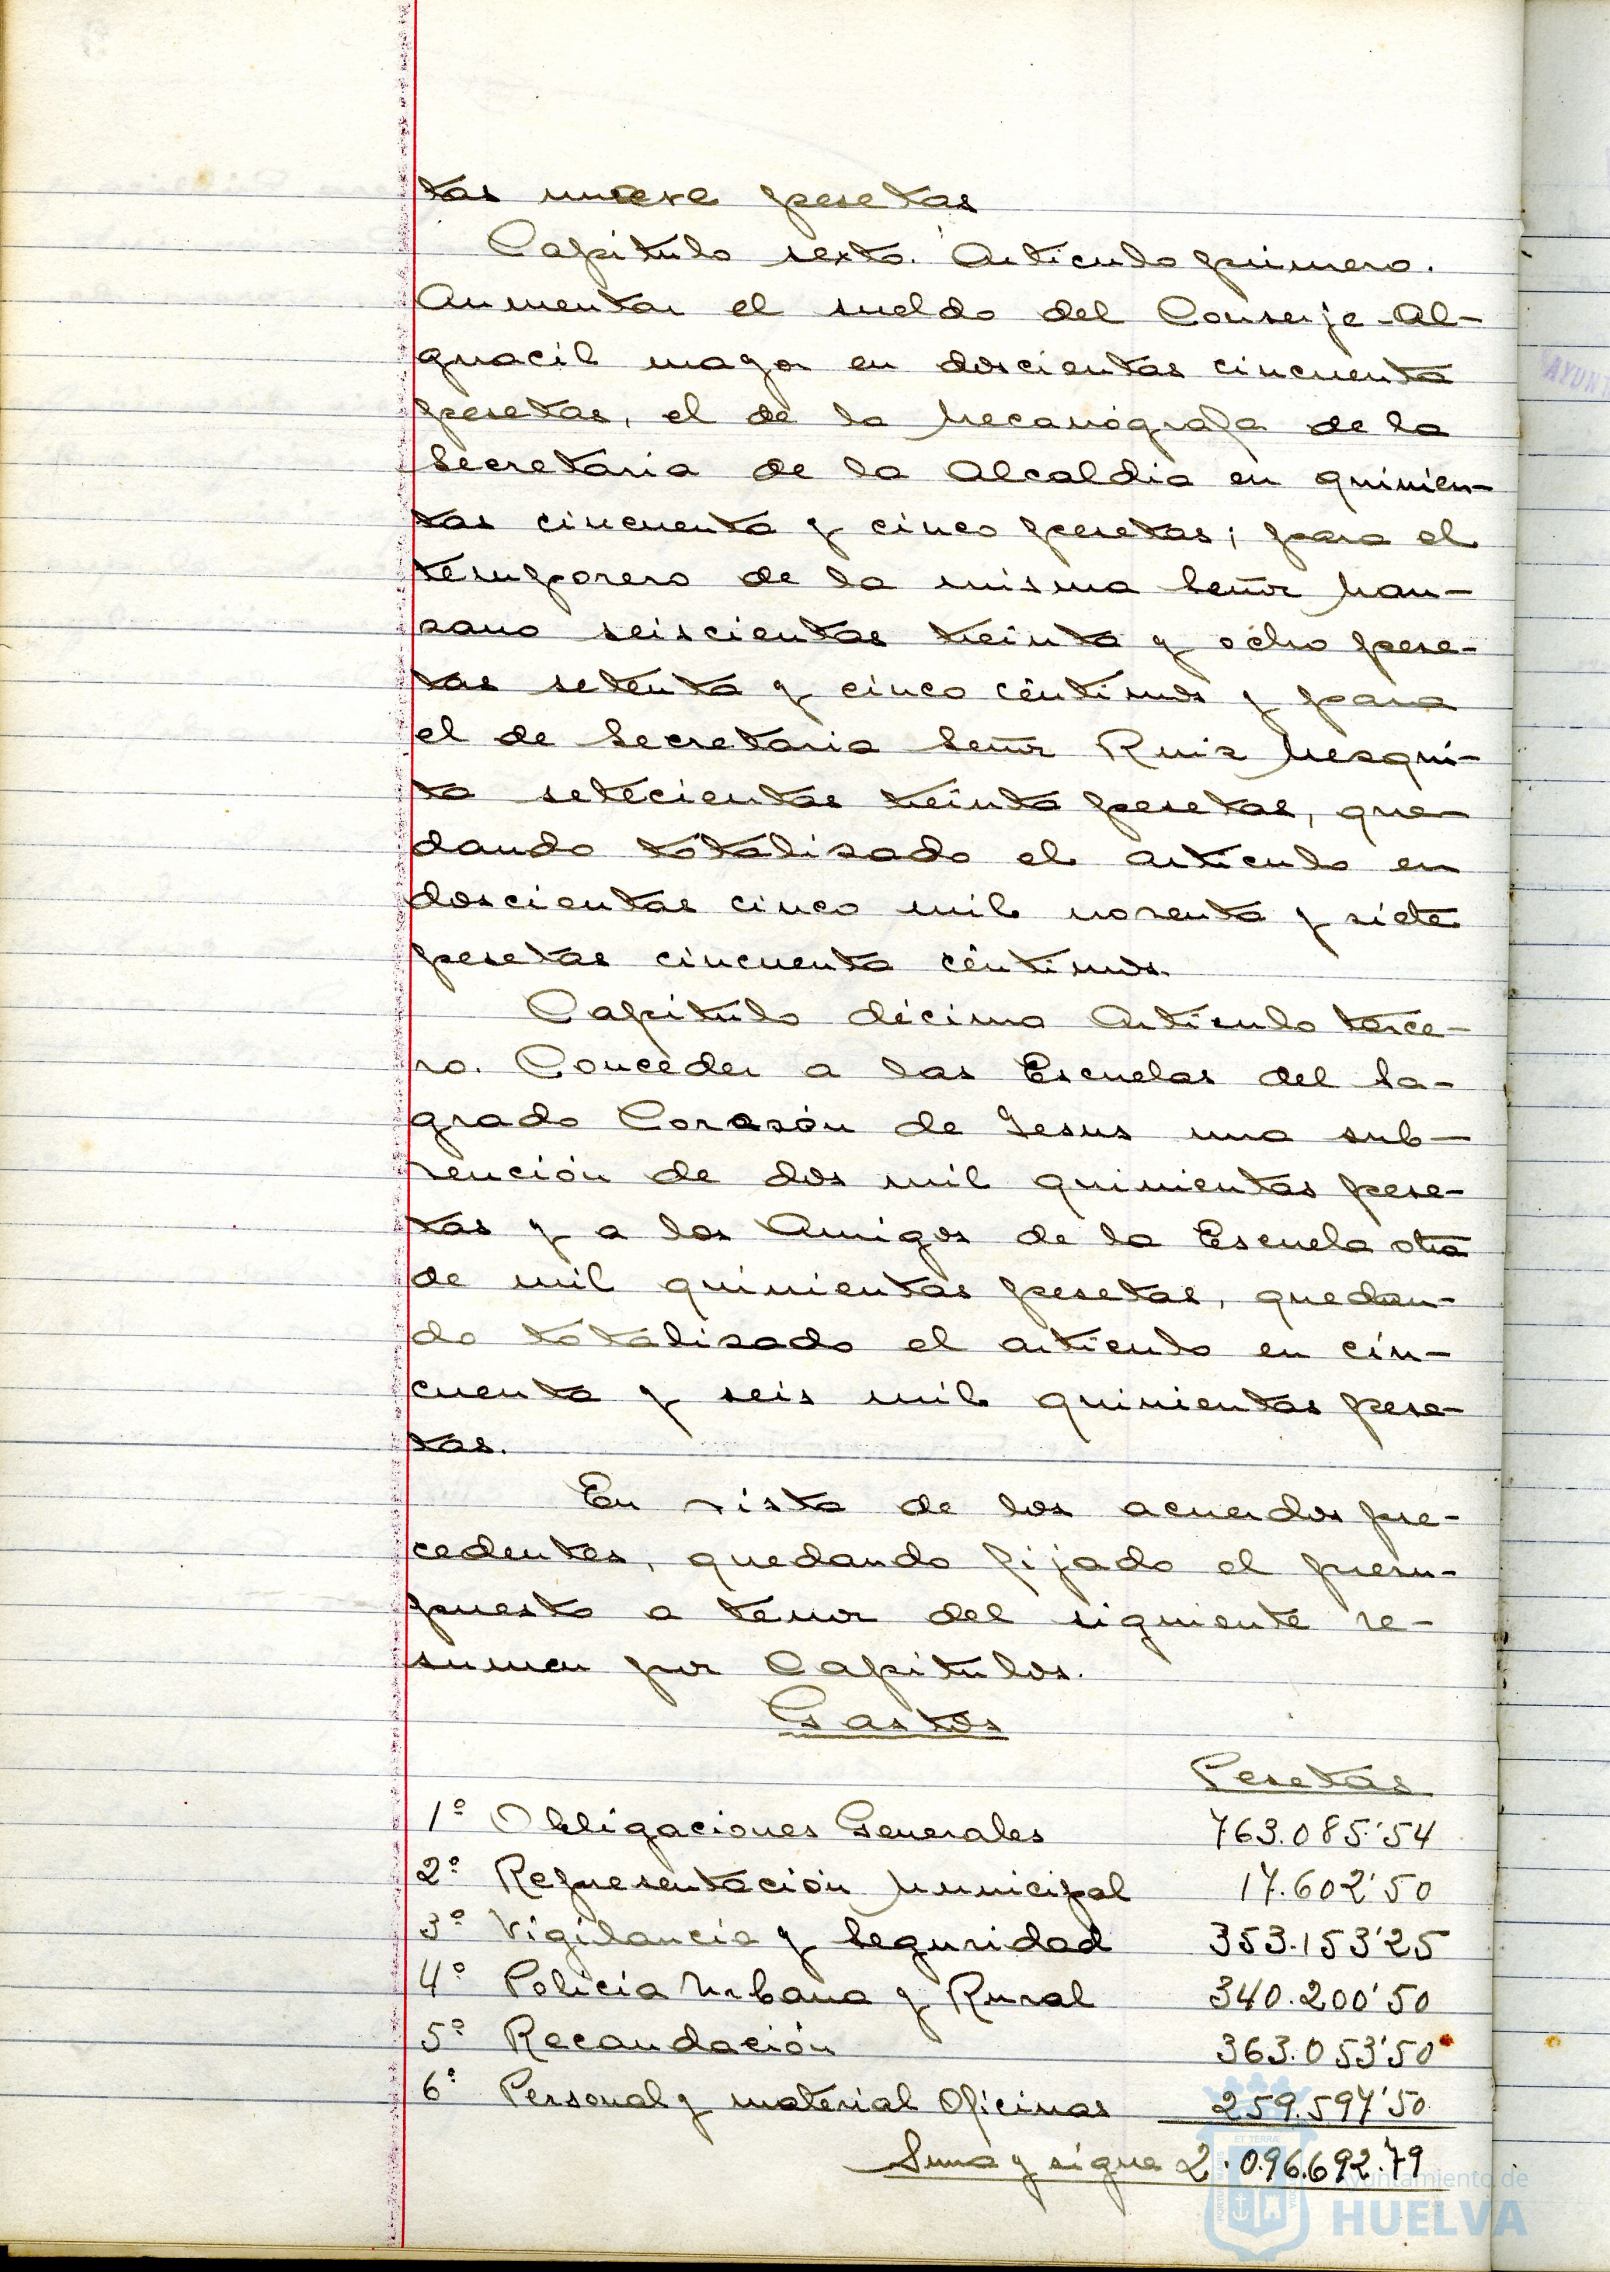 tas nueve pesetas
Capitulo sexto. Articulo primero.
Aumentar el sueldo del Conserje-Al-
guacil mayor en doscientas cincuenta
pesetas, el de la Mecanógrafa de la
Secretaria de la Alcaldia en quinien-
tas cincuenta y cinco pesetas; para el
temporero de la misma Señor Man-
zano seiscientas treinta y ocho pese-
tas setenta y cinco céntimos y para
el de Secretaria Señor Ruiz Mezqui-
ta setecientas treinta pesetas, que-
dando totalizado el articulo en
doscientas cinco mil noventa y siete
pesetas cincuenta céntimos.
Capitulo décimo Articulo terce-
ro. Conceder a las Escuelas del Sa-
grado Corazón de Jesus una sub-
vención de dos mil quinientas pese-
tas y a los Amigos de la Escuela otra
de mil quinientas pesetas, quedan-
do totalizado el articulo en cin-
cuenta y seis mil quinientas pese-
tas.
En vista de los acuerdos pre-
cedentes, quedando fijado el presu-
puesto a tenor del siguiente re-
sumen por Capitulos.
Gastos
Pesetas
1º Obligaciones Generales 763.085'54
2º Representación Municipal 17.602'50
3º Vigilancia y Seguridad 353.153'25
4º Policia Urbana y Rural 340.200'50
5º Recaudación 363.053'50
6º Personal y material Oficinas 259.597'50
Suma y sigue 2.096.692.79
AYUNT
ET TERRÆ
Ayuntamiento de
HUELVA